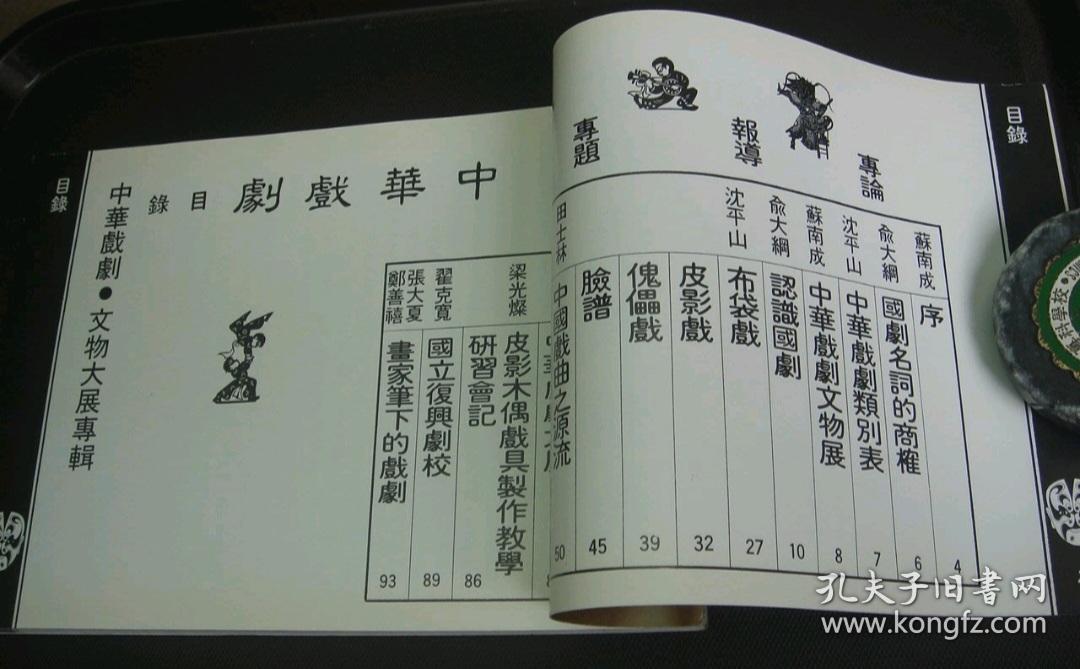 目錄
專論
報導
專題
蘇南成 序 4
俞大綱 國劇名詞的商榷 6
沈平山 中華戲劇類別表 7
蘇南成 中華戲劇文物展 8
俞大綱 認識國劇 10
沈平山 布袋戲 27
皮影戲 32
傀儡戲 39
臉譜 45
田士林 中國戲曲之源流 50
中華戲劇目錄
梁光燦 皮影木偶戲具製作教學
研習會記 86
翟克寬 國立復興劇校 89
張大夏
鄭善禧 畫家筆下的戲劇 93
中華戲劇•文物大展專輯
目錄
孔夫子旧书网
www.kongfz.com